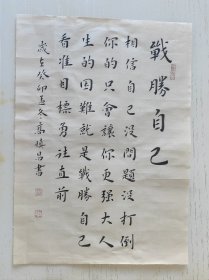 戰勝自己
相信自己沒問題沒打倒
你的只會讓你更强大人
生的困難就是戰勝自己
看准目標勇往直前
歲在癸卯孟冬高培昌書